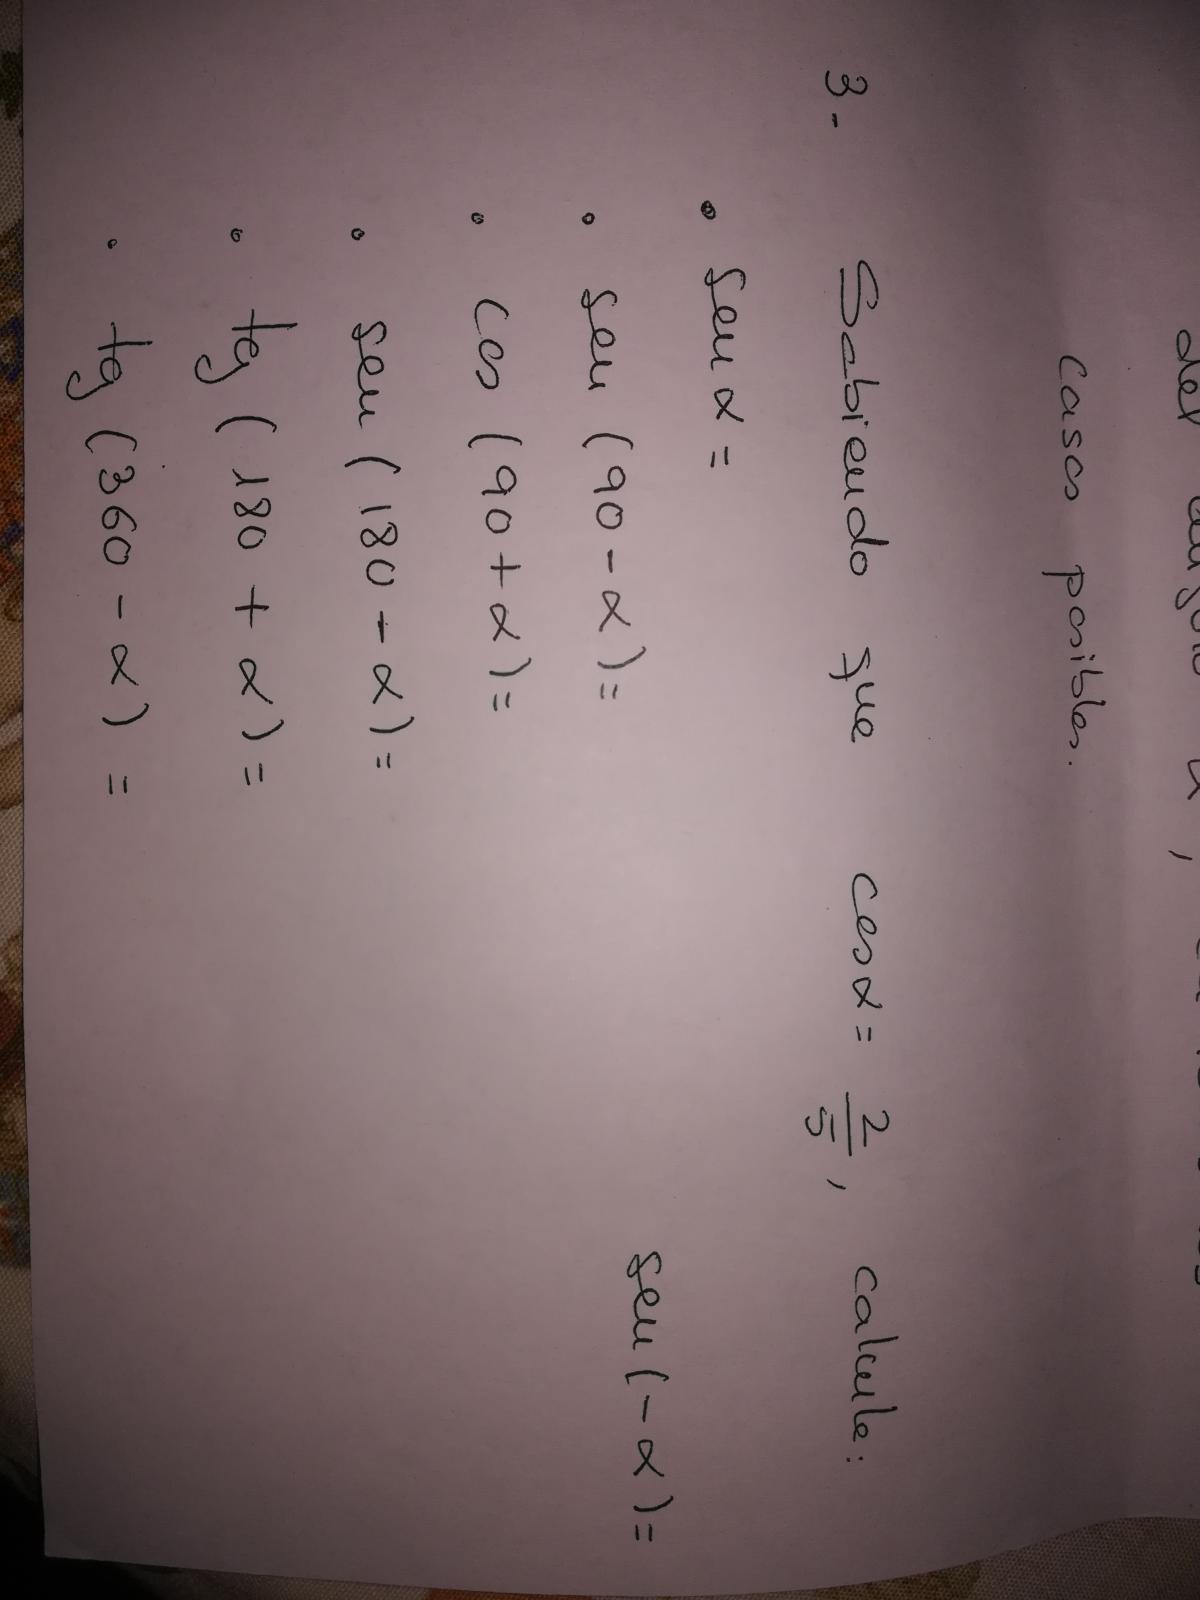 del α,
casos posibles.
3- Sabiendo que cos α = 2/5, calcule:
• sen α =
• sen (90 - α) = sen (- α) =
• cos (90 + α) =
• sen (180 - α) =
• tg (180 + α) =
• tg (360 - α) =